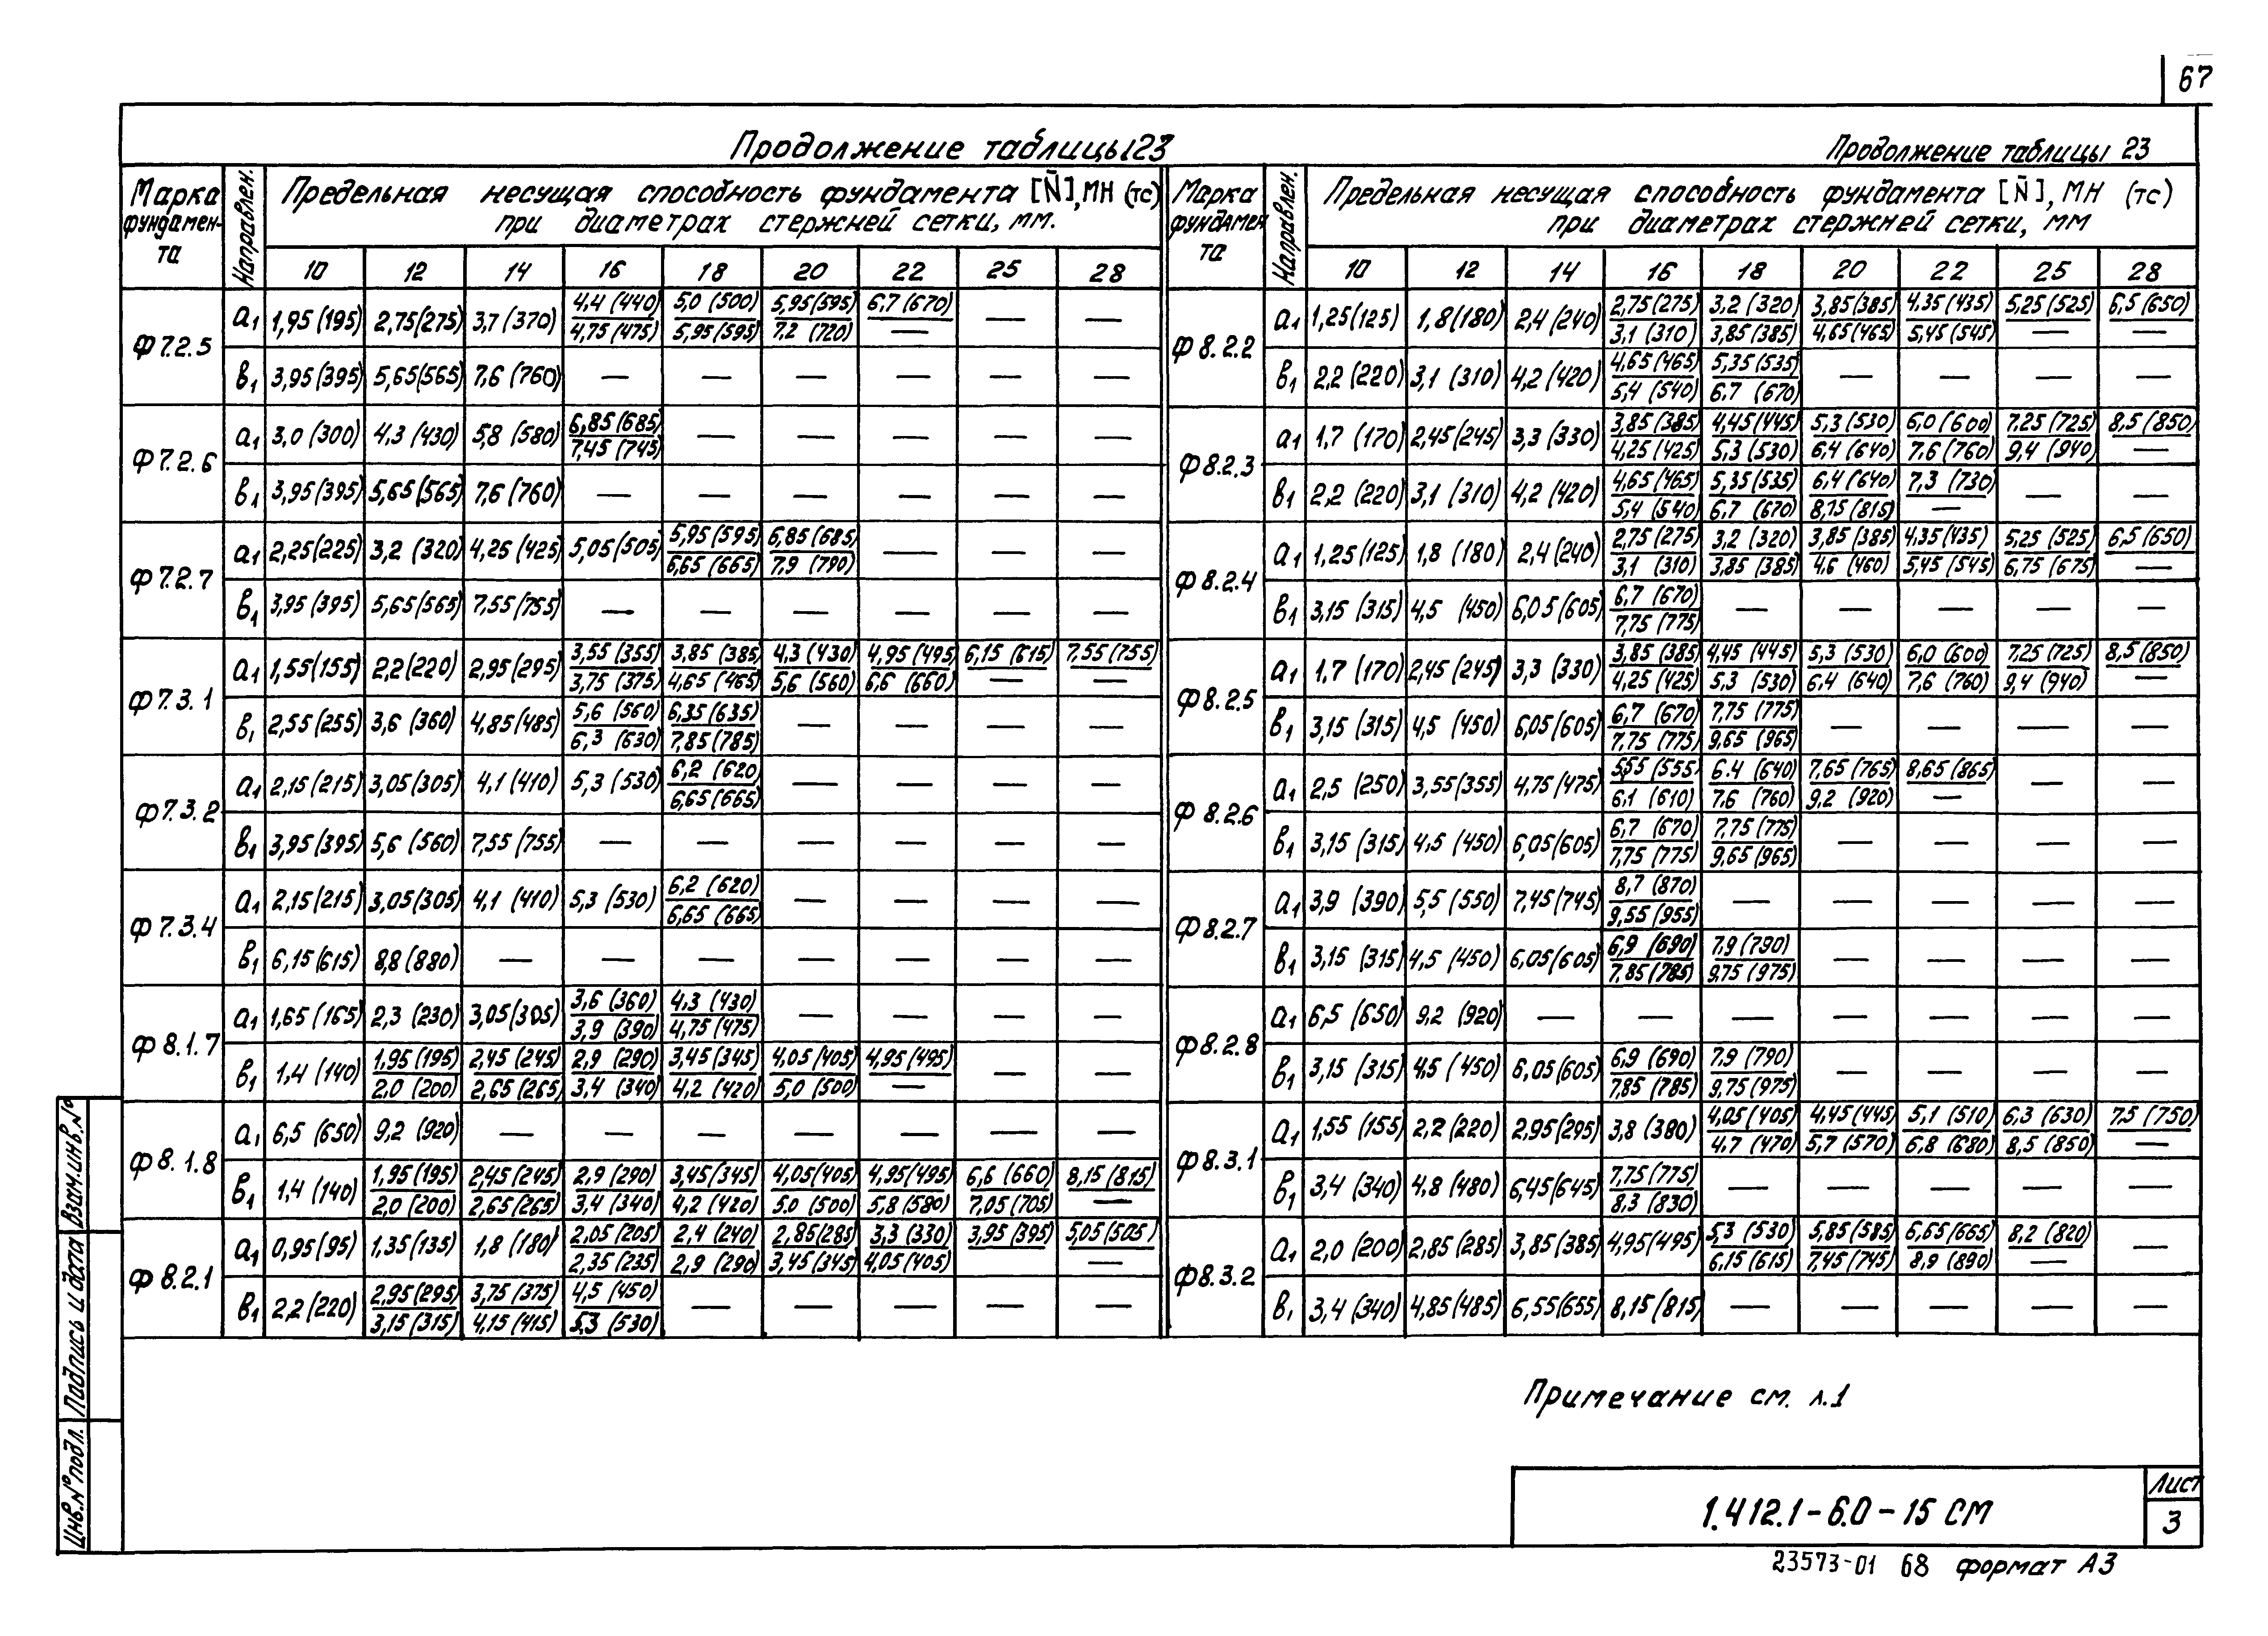 67
Продолжение таблицы 23
Марка фундамен-та | Направлен. | Предельная несущая способность фундамента [N̄], МН (тс) при диаметрах стержней сетки, мм.
10 | 12 | 14 | 16 | 18 | 20 | 22 | 25 | 28
Ф7.2.5 | а1 | 1,95(195) | 2,75(275) | 3,7(370) | 4,4(440) / 4,75(475) | 5,0(500) / 5,95(595) | 5,95(595) / 7,2(720) | 6,7(670) / — | — | —
в1 | 3,95(395) | 5,65(565) | 7,6(760) | — | — | — | — | — | —
Ф7.2.6 | а1 | 3,0(300) | 4,3(430) | 5,8(580) | 6,85(685) / 7,45(745) | — | — | — | — | —
в1 | 3,95(395) | 5,65(565) | 7,6(760) | — | — | — | — | — | —
Ф7.2.7 | а1 | 2,25(225) | 3,2(320) | 4,25(425) | 5,05(505) | 5,95(595) / 6,65(665) | 6,85(685) / 7,9(790) | — | — | —
в1 | 3,95(395) | 5,65(565) | 7,55(755) | — | — | — | — | — | —
Ф7.3.1 | а1 | 1,55(155) | 2,2(220) | 2,95(295) | 3,55(355) / 3,75(375) | 3,85(385) / 4,65(465) | 4,3(430) / 5,6(560) | 4,95(495) / 6,6(660) | 6,15(615) / — | 7,55(755) / —
в1 | 2,55(255) | 3,6(360) | 4,85(485) | 5,6(560) / 6,3(630) | 6,35(635) / 7,85(785) | — | — | — | —
Ф7.3.2 | а1 | 2,15(215) | 3,05(305) | 4,1(410) | 5,3(530) | 6,2(620) / 6,65(665) | — | — | — | —
в1 | 3,95(395) | 5,6(560) | 7,55(755) | — | — | — | — | — | —
Ф7.3.4 | а1 | 2,15(215) | 3,05(305) | 4,1(410) | 5,3(530) | 6,2(620) / 6,65(665) | — | — | — | —
в1 | 6,15(615) | 8,8(880) | — | — | — | — | — | — | —
Ф8.1.7 | а1 | 1,65(165) | 2,3(230) | 3,05(305) | 3,6(360) / 3,9(390) | 4,3(430) / 4,75(475) | — | — | — | —
в1 | 1,4(140) | 1,95(195) / 2,0(200) | 2,45(245) / 2,65(265) | 2,9(290) / 3,4(340) | 3,45(345) / 4,2(420) | 4,05(405) / 5,0(500) | 4,95(495) / — | — | —
Ф8.1.8 | а1 | 6,5(650) | 9,2(920) | — | — | — | — | — | — | —
в1 | 1,4(140) | 1,95(195) / 2,0(200) | 2,45(245) / 2,65(265) | 2,9(290) / 3,4(340) | 3,45(345) / 4,2(420) | 4,05(405) / 5,0(500) | 4,95(495) / 5,8(580) | 6,6(660) / 7,05(705) | 8,15(815) / —
Ф8.2.1 | а1 | 0,95(95) | 1,35(135) | 1,8(180) | 2,05(205) / 2,35(235) | 2,4(240) / 2,9(290) | 2,85(285) / 3,45(345) | 3,3(330) / 4,05(405) | 3,95(395) | 5,05(505) / —
в1 | 2,2(220) | 2,95(295) / 3,15(315) | 3,75(375) / 4,15(415) | 4,5(450) / 5,3(530) | — | — | — | — | —
Продолжение таблицы 23
Марка фундамен та | Направлен. | Предельная несущая способность фундамента [N̄], МН (тс) при диаметрах стержней сетки, мм
10 | 12 | 14 | 16 | 18 | 20 | 22 | 25 | 28
Ф8.2.2 | а1 | 1,25(125) | 1,8(180) | 2,4(240) | 2,75(275) / 3,1(310) | 3,2(320) / 3,85(385) | 3,85(385) / 4,65(465) | 4,35(435) / 5,45(545) | 5,25(525) / — | 6,5(650) / —
в1 | 2,2(220) | 3,1(310) | 4,2(420) | 4,65(465) / 5,4(540) | 5,35(535) / 6,7(670) | — | — | — | —
Ф8.2.3 | а1 | 1,7(170) | 2,45(245) | 3,3(330) | 3,85(385) / 4,25(425) | 4,45(445) / 5,3(530) | 5,3(530) / 6,4(640) | 6,0(600) / 7,6(760) | 7,25(725) / 9,4(940) | 8,5(850) / —
в1 | 2,2(220) | 3,1(310) | 4,2(420) | 4,65(465) / 5,4(540) | 5,35(535) / 6,7(670) | 6,4(640) / 8,15(815) | 7,3(730) / — | — | —
Ф8.2.4 | а1 | 1,25(125) | 1,8(180) | 2,4(240) | 2,75(275) / 3,1(310) | 3,2(320) / 3,85(385) | 3,85(385) / 4,6(460) | 4,35(435) / 5,45(545) | 5,25(525) / 6,75(675) | 6,5(650) / —
в1 | 3,15(315) | 4,5(450) | 6,05(605) | 6,7(670) / 7,75(775) | — | — | — | — | —
Ф8.2.5 | а1 | 1,7(170) | 2,45(245) | 3,3(330) | 3,85(385) / 4,25(425) | 4,45(445) / 5,3(530) | 5,3(530) / 6,4(640) | 6,0(600) / 7,6(760) | 7,25(725) / 9,4(940) | 8,5(850) / —
в1 | 3,15(315) | 4,5(450) | 6,05(605) | 6,7(670) / 7,75(775) | 7,75(775) / 9,65(965) | — | — | — | —
Ф8.2.6 | а1 | 2,5(250) | 3,55(355) | 4,75(475) | 5,55(555) / 6,1(610) | 6.4(640) / 7,6(760) | 7,65(765) / 9,2(920) | 8,65(865) / — | — | —
в1 | 3,15(315) | 4,5(450) | 6,05(605) | 6,7(670) / 7,75(775) | 7,75(775) / 9,65(965) | — | — | — | —
Ф8.2.7 | а1 | 3,9(390) | 5,5(550) | 7,45(745) | 8,7(870) / 9,55(955) | — | — | — | — | —
в1 | 3,15(315) | 4,5(450) | 6,05(605) | 6,9(690) / 7,85(785) | 7,9(790) / 9,75(975) | — | — | — | —
Ф8.2.8 | а1 | 6,5(650) | 9,2(920) | — | — | — | — | — | — | —
в1 | 3,15(315) | 4,5(450) | 6,05(605) | 6,9(690) / 7,85(785) | 7,9(790) / 9,75(975) | — | — | — | —
Ф8.3.1 | а1 | 1,55(155) | 2,2(220) | 2,95(295) | 3,8(380) | 4,05(405) / 4,7(470) | 4,45(445) / 5,7(570) | 5,1(510) / 6,8(680) | 6,3(630) / 8,5(850) | 7,5(750) / —
в1 | 3,4(340) | 4,8(480) | 6,45(645) | 7,75(775) / 8,3(830) | — | — | — | — | —
Ф8.3.2 | а1 | 2,0(200) | 2,85(285) | 3,85(385) | 4,95(495) | 5,3(530) / 6,15(615) | 5,85(585) / 7,45(745) | 6,65(665) / 8,9(890) | 8,2(820) / — | —
в1 | 3,4(340) | 4,85(485) | 6,55(655) | 8,15(815) | — | — | — | — | —
Примечание см. л.1
Инв.№ подл.
Подпись и дата
Взам.инв.№
1.412.1-6.0-15 СМ
Лист
3
23573-01 68 формат А3